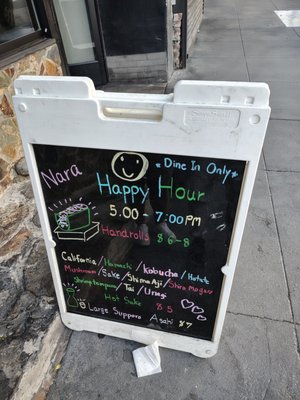 Nara
* Dine In Only *
Happy Hour
5:00 - 7:00 PM
Handrolls $6-8
California / Hamachi / Kabocha / Hotate
Mushroom / Sake / Shima Aji / Shiro Maguro
Shrimp tempura / Tai / Unagi
Hot Sake $5
Large Sapporo Asahi $7